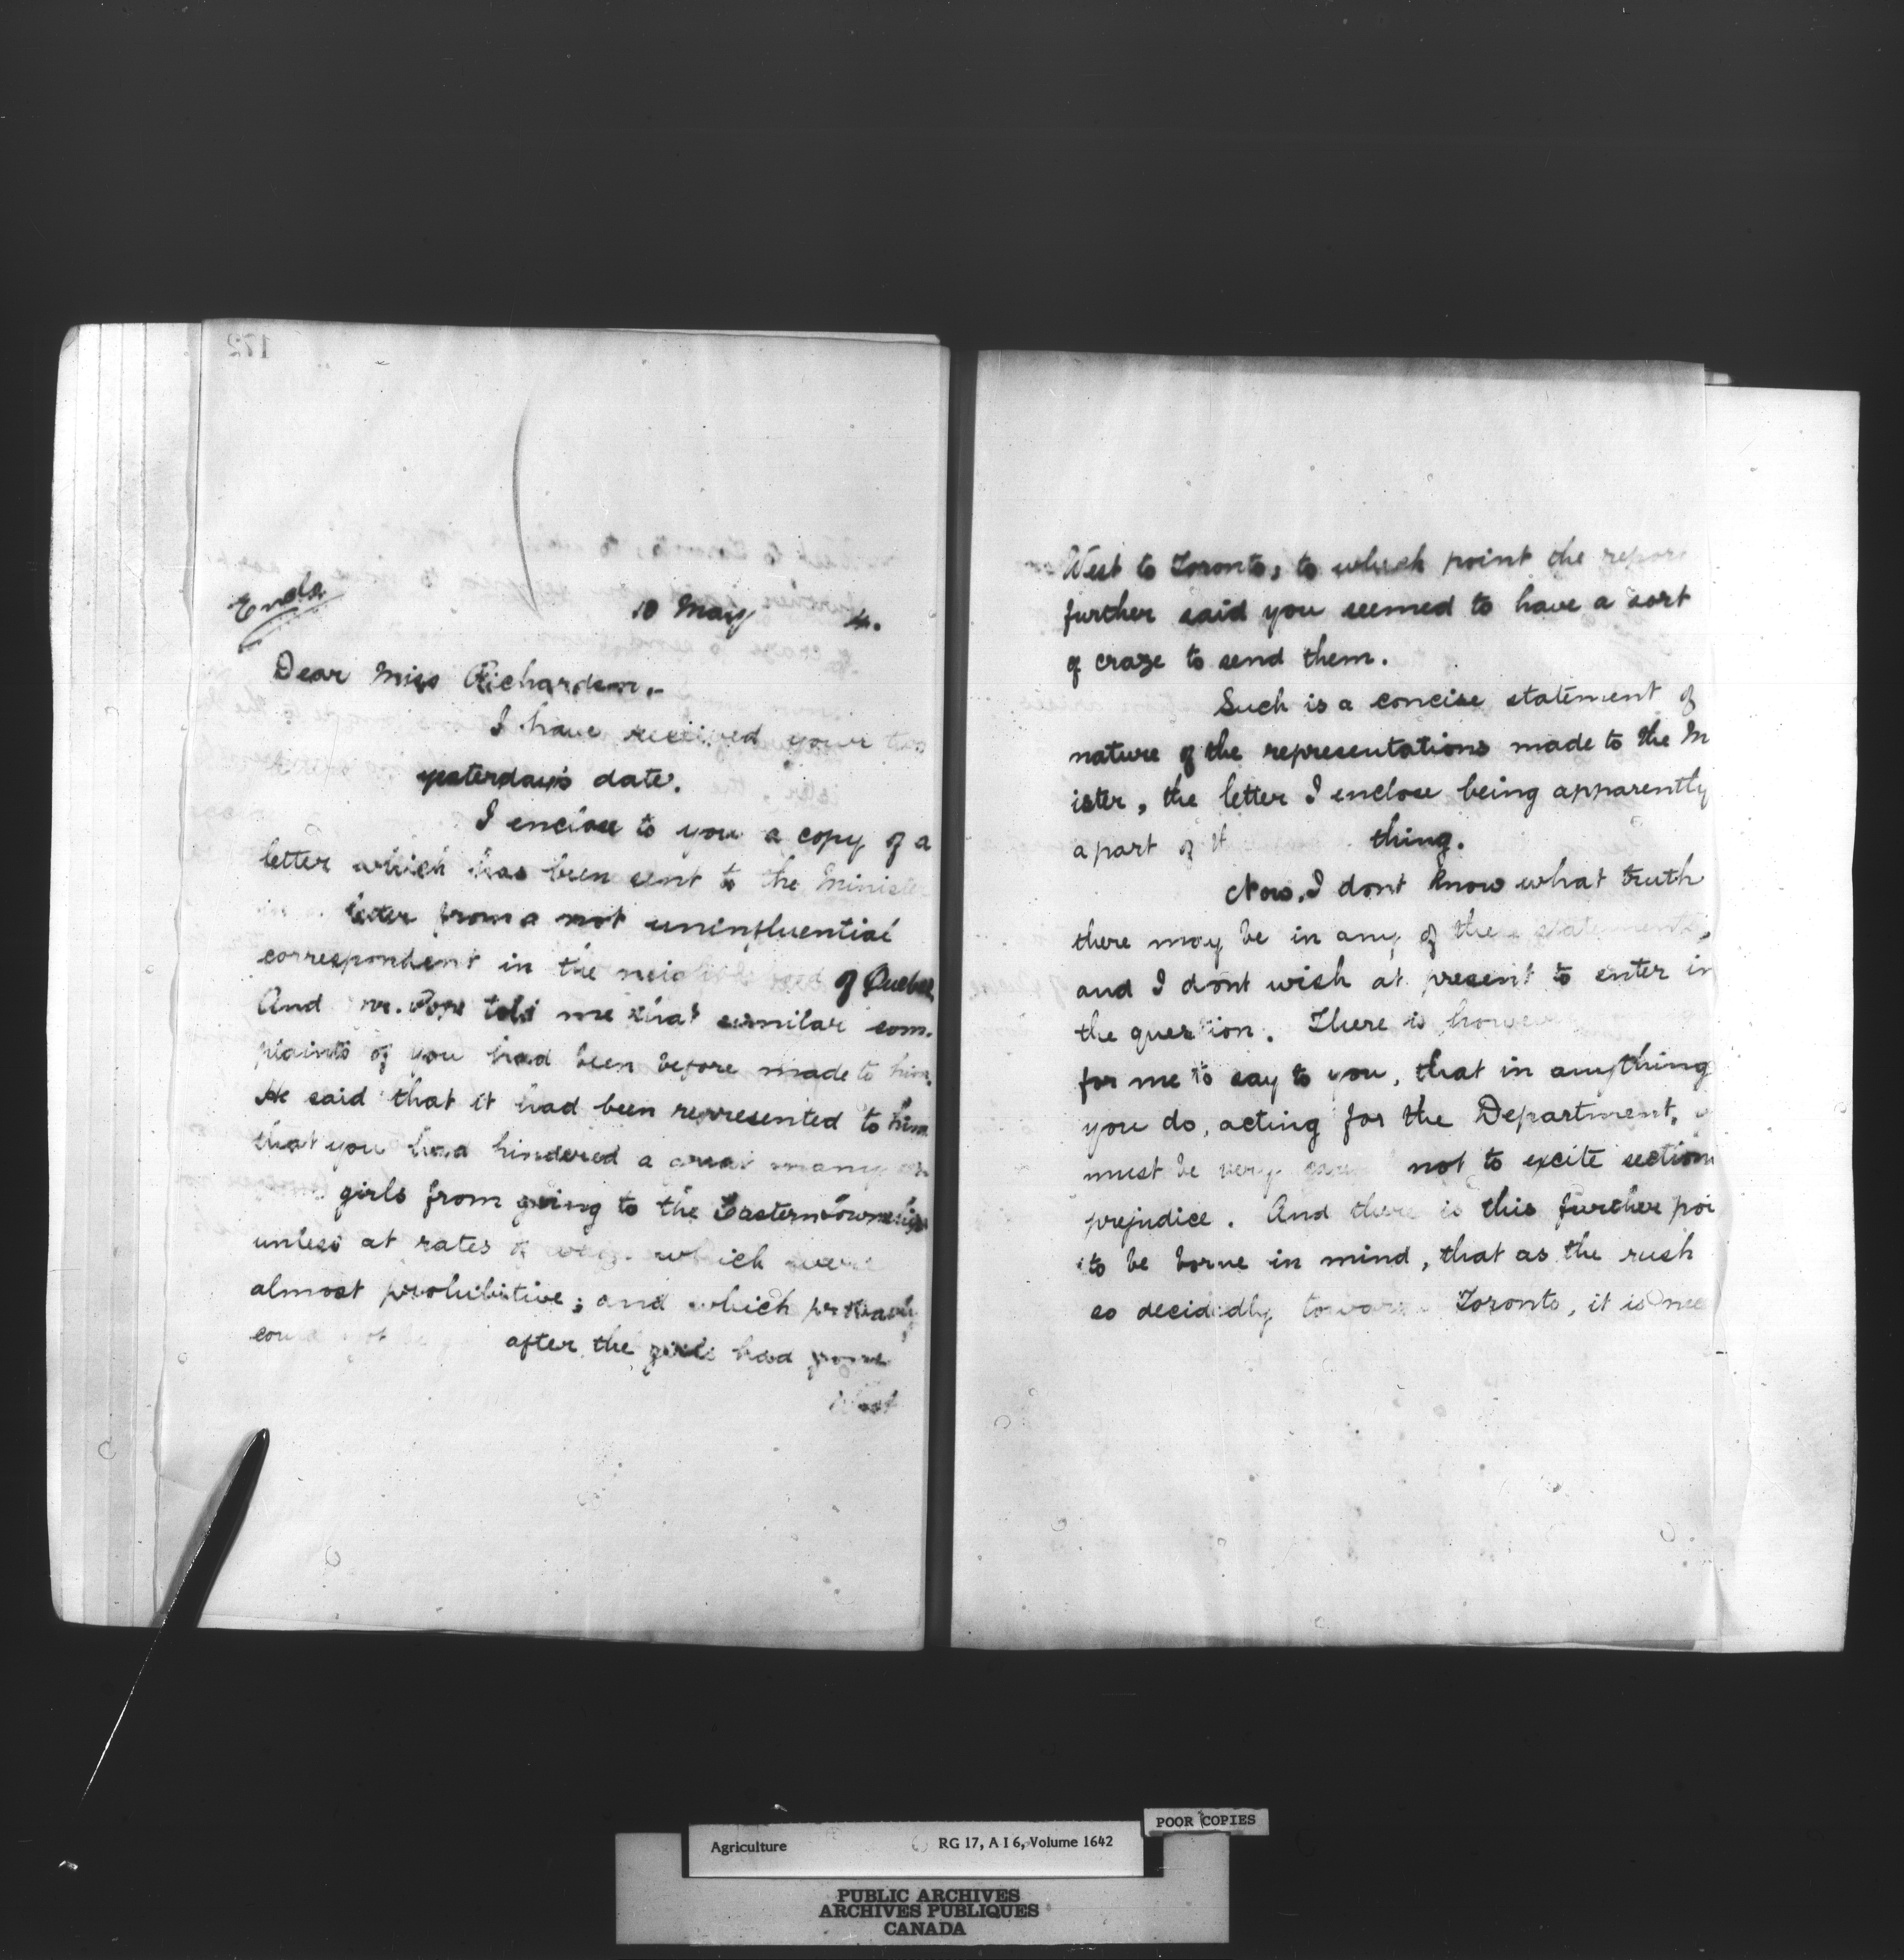 172
Encls
10 May 4.
Dear Miss Richardson,-
I have received your two
yesterday's date.
I enclose to you a copy of a
letter which has been sent to the Ministe
letter from a not uninfluential
correspondent in the of Quebec
And Mr. Pope told me that similar com-
plaints of you had been before made to him.
He said that it had been represented to him
that you had hindered a great many
girls from going to the Eastern Townships
unless at rates of which were
almost prohibitive; and which probably
after the girls had gone
West
West to Toronto, to which point the report
further said you seemed to have a sort
of craze to send them.
Such is a concise statement of
nature of the representations made to the Min
ister, the letter I enclose being apparently
a part of thing.
Now, I dont know what truth
there may be in any of these statements,
and I dont wish at present to enter in
the question. There is however
for me to say to you, that in anything
you do, acting for the Department,
must be very not to excite section
prejudice. And there is this further poi
to be borne in mind, that as the rush
so decidedly towards Toronto, it is
POOR COPIES
Agriculture RG 17, A I 6, Volume 1642
PUBLIC ARCHIVES
ARCHIVES PUBLIQUES
CANADA